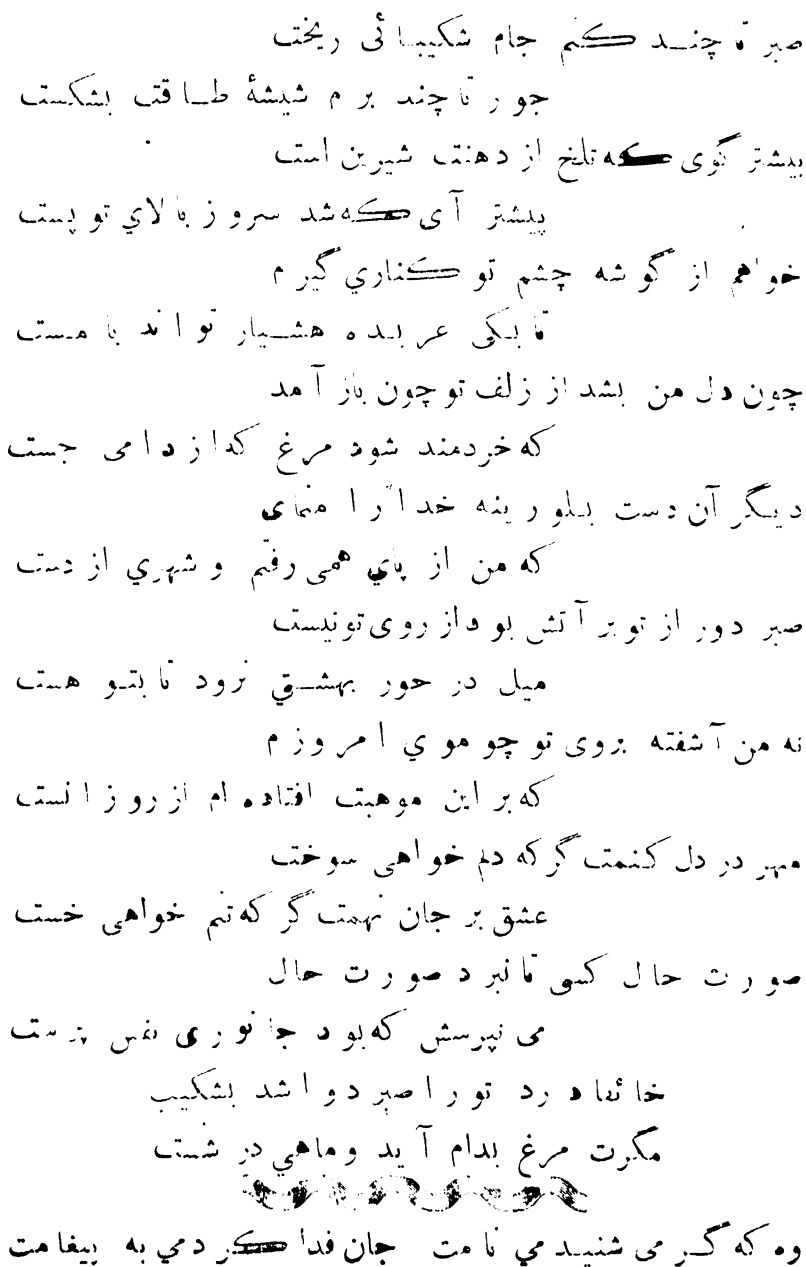 صبر تا چند کنم جام شکیبائی ریخت
جور تا چند برم شیشهٔ طاقت بشکست
بیشتر گوی که تلخ از دهنت شیرین است
پیشتر آی که شد سرو ز بالاي تو پست
خواهم از گوشه چشم تو کناري گیرم
تا بکی عربده هشیار تواند با مست
چون دل من بشد از زلف تو چون باز آمد
که خردمند شود مرغ که از دامی جست
دیگر آن دست بلورینه خدا را منمای
که من از پاي همی رفتم و شهري از دست
صبر دور از تو بر آتش بود از روی تو نیست
میل در حور بهشتي نرود تا بتو هست
نه من آشفته بروی تو چو موي امروزم
که بر این موهبت افتاده ام از روز الست
مهر در دل کنمت گر که دلم خواهی سوخت
عشق بر جان نهمت گر که تنم خواهی خست
صورت حال کسی تا نبرد صورت حال
می نپرسش که بود جانوری نفس پرست
خائفا درد تو را صبر دوا شد بشکیب
مگرت مرغ بدام آید و ماهي در شست
وه که گر می شنیدمي نامت جان فدا کردمي به پیغامت